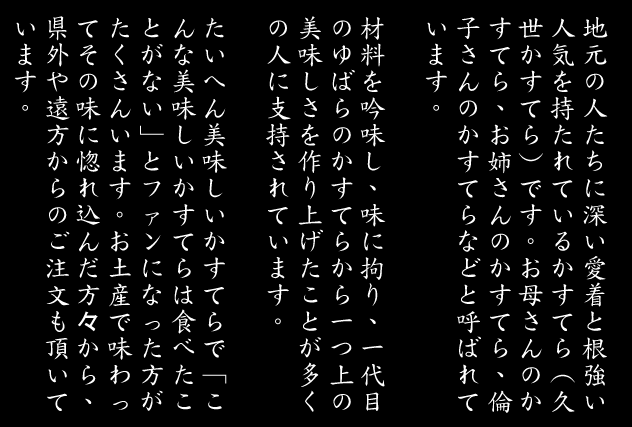 地元の人たちに深い愛着と根強い
人気を持たれているかすてら（久
世かすてら）です。お母さんのか
すてら、お姉さんのかすてら、倫
子さんのかすてらなどと呼ばれて
います。
材料を吟味し、味に拘り、一代目
のゆばらのかすてらから一つ上の
美味しさを作り上げたことが多く
の人に支持されています。
たいへん美味しいかすてらで「こ
んな美味しいかすてらは食べたこ
とがない」とファンになった方が
たくさんいます。お土産で味わっ
てその味に惚れ込んだ方々から、
県外や遠方からのご注文も頂いて
います。